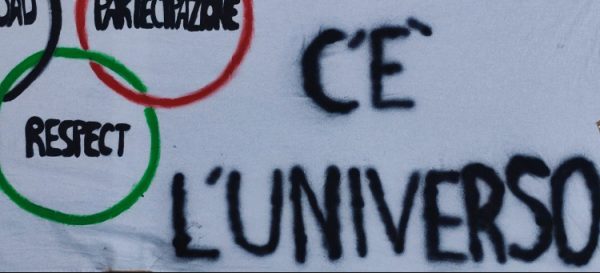 PARTECIPAZIONE
RESPECT
C'È
L'UNIVERSO